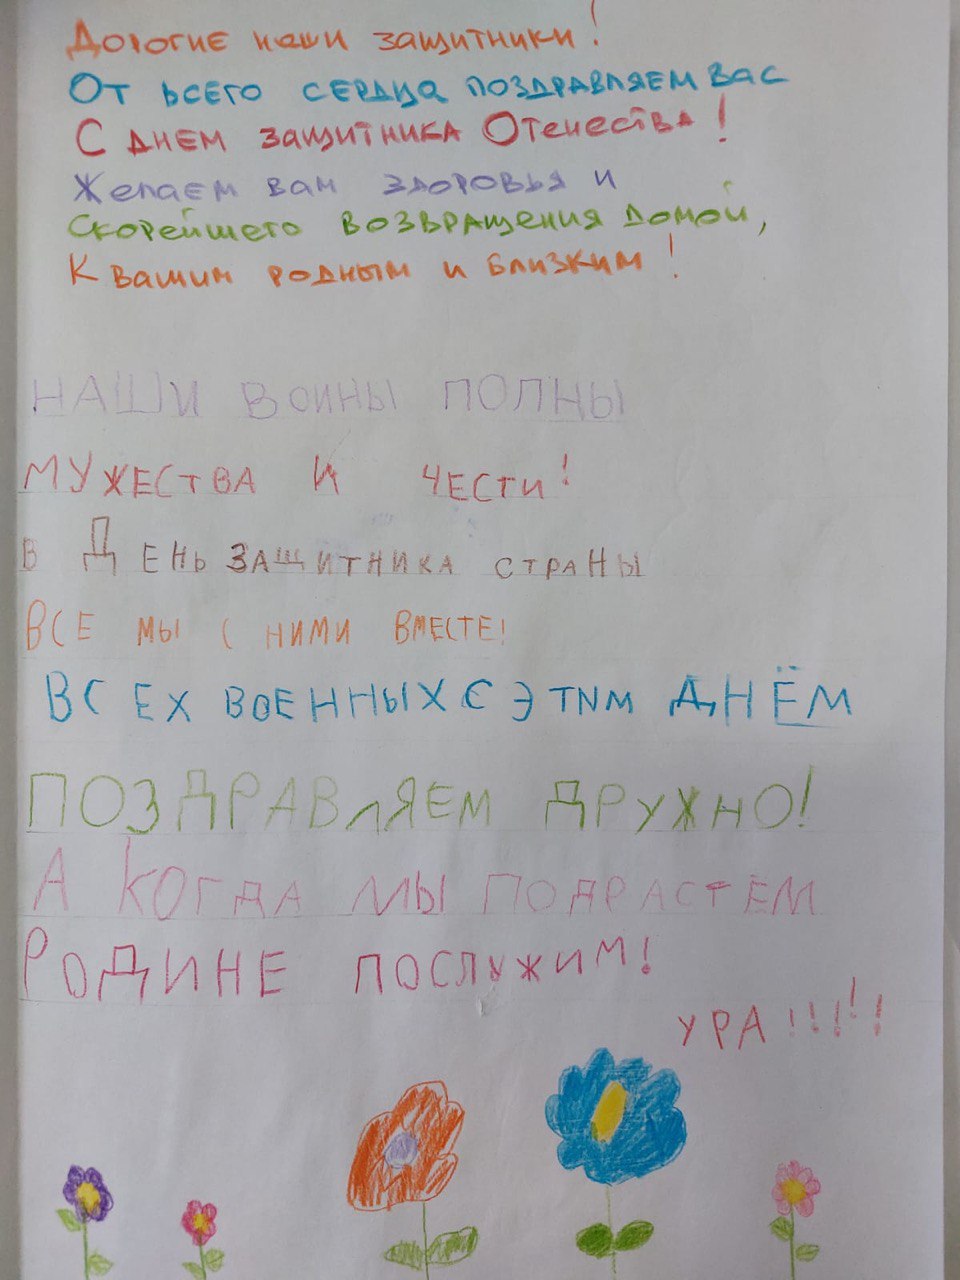 Дорогие наши защитники!
От всего сердца поздравляем вас
С днем защитника Отечества!
Желаем вам здоровья и
Скорейшего возвращения домой,
К вашим родным и близким!
НАШИ ВОИНЫ ПОЛНЫ
МУЖЕСТВА И ЧЕСТИ!
В ДЕНЬ ЗАЩИТНИКА СТРАНЫ
ВСЕ МЫ С НИМИ ВМЕСТЕ!
ВСЕХ ВОЕННЫХ С ЭТИМ ДНЁМ
ПОЗДРАВЛЯЕМ ДРУЖНО!
А КОГДА МЫ ПОДРАСТЁМ
РОДИНЕ ПОСЛУЖИМ!
УРА!!!!!